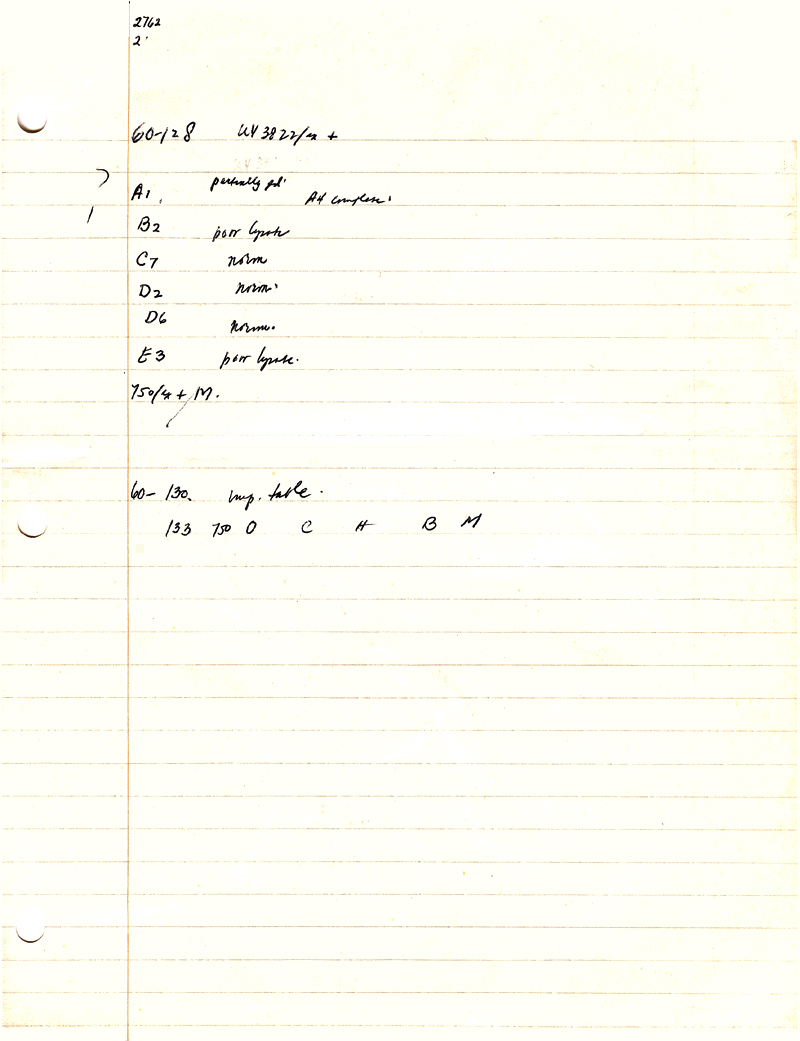 2762
2'
60-128 UV 3822/ex +
A1. partially A4 complete.
B2 poor lysate
C7 norm
D2 norm.
D6 norm.
E3 poor lysate.
750/ex + M.
60-130. table.
133 750 O C H B M